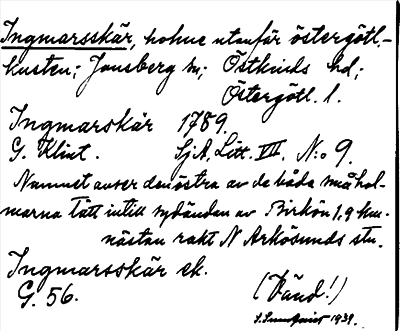 Ingmarsskär, holme utanför östergötl.-
kusten; Jonsberg sn; Östkinds hd;
Östergötl. l.
Ingmarskär 1789.
G. Klint. SjA, Litt. VII. N:o 9.
Namnet avser den östra av de båda småhol-
marna tätt intill sydändan av Birkön 1,9 km.
nästan rakt N Arkösunds stn.
Ingmarsskär ek.
G. 56. (Vänd!)
1939.